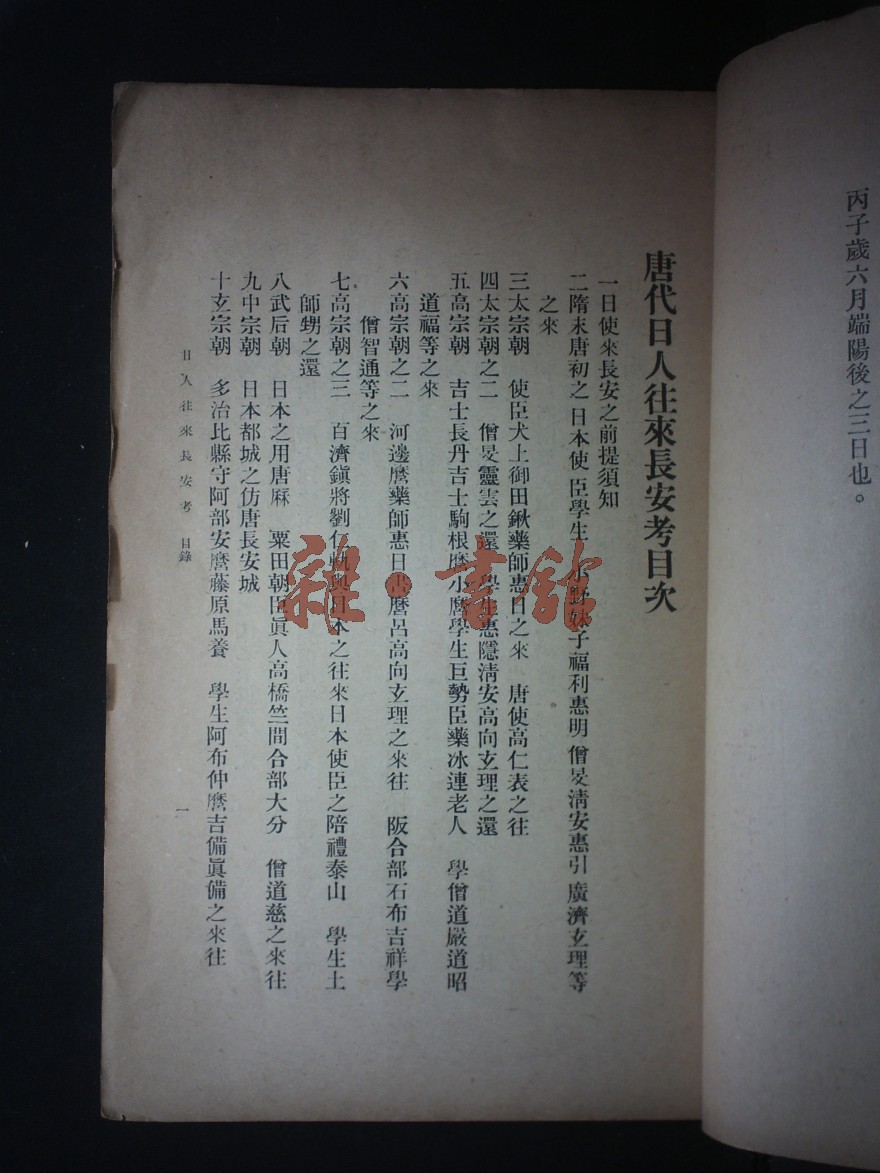 丙子歲六月端陽後之三日也。
唐代日人往來長安考目次
一日使來長安之前提須知
二隋末唐初之日本使臣學生 小野妹子福利惠明 僧旻淸安惠引 廣濟玄理等
之來
三太宗朝 使臣犬上御田鍬藥師惠日之來 唐使高仁表之往
四太宗朝之二 僧旻靈雲之還 學生惠隱淸安高向玄理之還
五高宗朝 吉士長丹吉士駒根麿小麿學生巨勢臣藥冰連老人 學僧道嚴道昭
道福等之來
六高宗朝之二 河邊麿藥師惠日書麿呂高向玄理之來往 阪合部石布吉祥學
僧智通等之來
七高宗朝之三 百濟鎭將劉仁軌與日本之往來日本使臣之陪禮泰山 學生土
師甥之還
八武后朝 日本之用唐厤 粟田朝臣眞人高橋竺間合部大分 僧道慈之來往
九中宗朝 日本都城之仿唐長安城
十玄宗朝 多治比縣守阿部安麿藤原馬養 學生阿布仲麿吉備眞備之來往
日人往來長安考 目錄
一
雜·書館